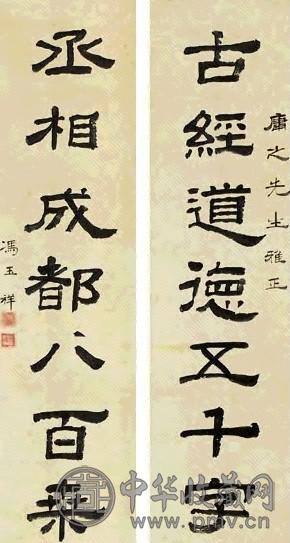 庸之先生雅正
古經道德五千字
丞相成都八百桒
馮玉祥
中华收藏网
www.pmv.cn